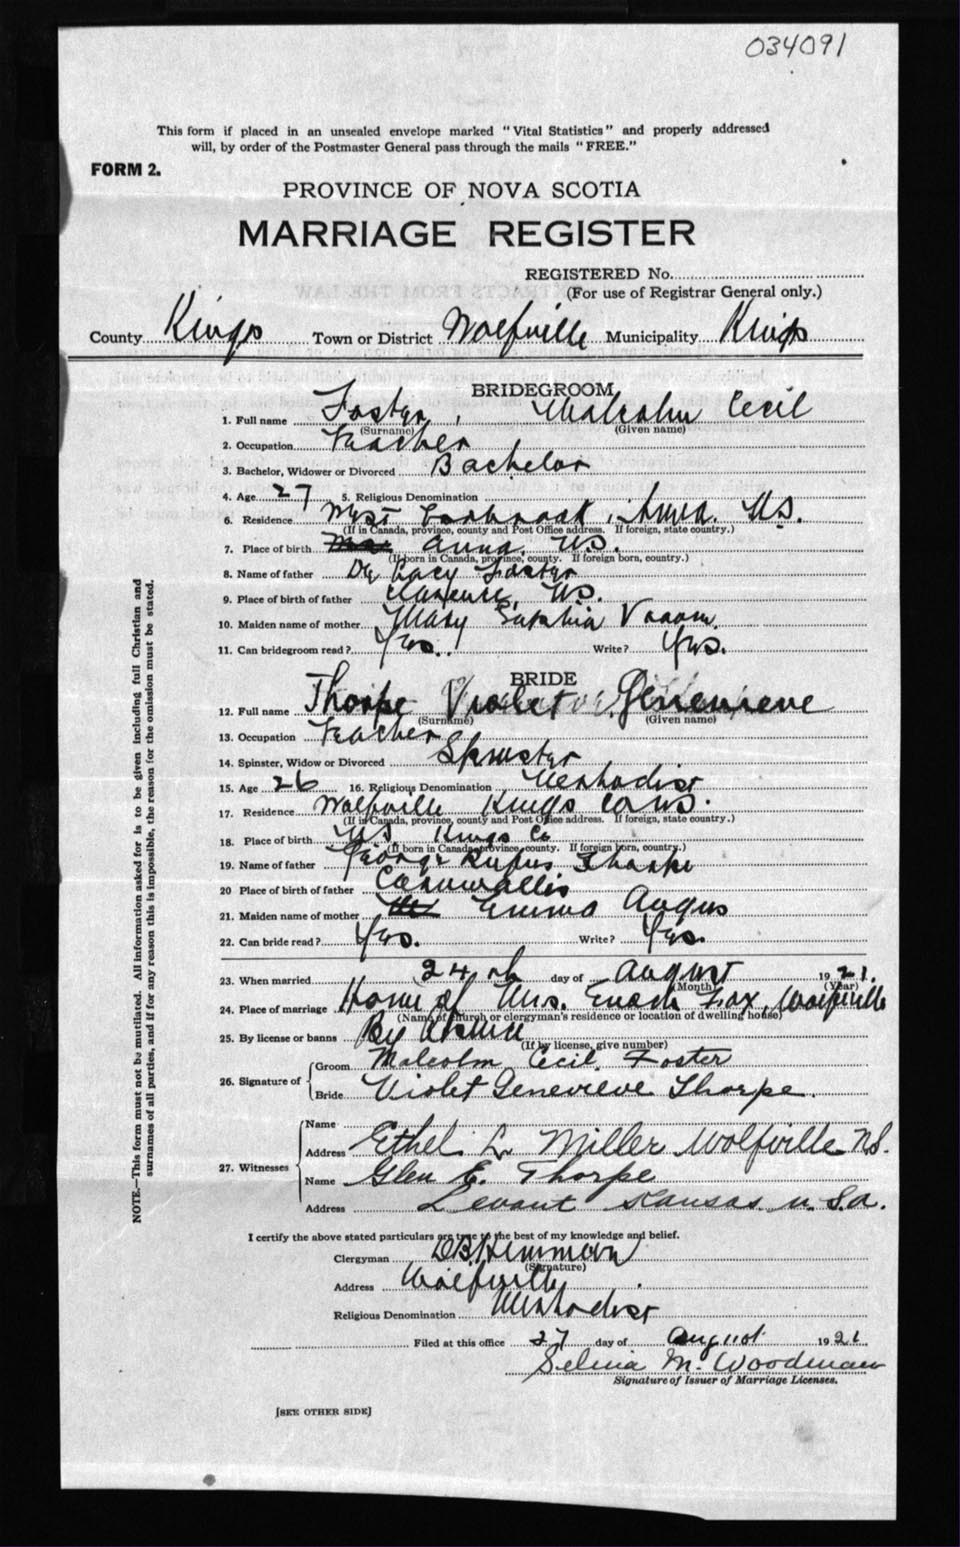 034091
This form if placed in an unsealed envelope marked "Vital Statistics" and properly addressed
will, by order of the Postmaster General pass through the mails "FREE."
FORM 2.
PROVINCE OF NOVA SCOTIA
MARRIAGE REGISTER
REGISTERED No.
(For use of Registrar General only.)
County Kings Town or District Wolfville Municipality Kings
BRIDEGROOM
1. Full name Foster, Malcolm Cecil
(Surname) (Given name)
2. Occupation Teacher
3. Bachelor, Widower or Divorced Bachelor
4. Age 27 5. Religious Denomination
6. Residence West Anna. N.S.
(If in Canada, province, county and Post Office address. If foreign, state country.)
7. Place of birth Anna. N.S.
(If born in Canada, province, county. If foreign born, country.)
8. Name of father De Lacy Foster
9. Place of birth of father Clarence, N.S.
10. Maiden name of mother Mary Sophia Vroom
11. Can bridegroom read? Yes. Write? Yes.
BRIDE
12. Full name Thorpe Violet Genevieve
(Surname) (Given name)
13. Occupation Teacher
14. Spinster, Widow or Divorced Spinster
15. Age 26 16. Religious Denomination Methodist
17. Residence Wolfville Kings Co N.S.
(If in Canada, province, county and Post Office address. If foreign, state country.)
18. Place of birth N.S Kings Co
(If born in Canada, province, county. If foreign born, country.)
19. Name of father George Rufus Thorpe
20 Place of birth of father Cornwallis
21. Maiden name of mother Emma Angus
22. Can bride read? Yes. Write? Yes.
23. When married 24th day of August 1921.
(Month) (Year)
24. Place of marriage Home of Mrs. Enoch Fox, Wolfville
(Name of church or clergyman's residence or location of dwelling house)
25. By license or banns By License
(If by license, give number)
26. Signature of
Groom Malcolm Cecil Foster
Bride Violet Genevieve Thorpe.
27. Witnesses
Name
Address Ethel L. Miller Wolfville N.S.
Name Glen E. Thorpe
Address Levant Kansas U.S.A.
I certify the above stated particulars are true to the best of my knowledge and belief.
Clergyman D.B. Hemmeon
(Signature)
Address Wolfville
Religious Denomination Methodist
Filed at this office 27 day of August 1921
Selina M. Woodman
Signature of Issuer of Marriage Licenses.
[SEE OTHER SIDE]
NOTE.—This form must not be mutilated. All information asked for is to be given including full Christian and
surnames of all parties, and if for any reason this is impossible, the reason for the omission must be stated.